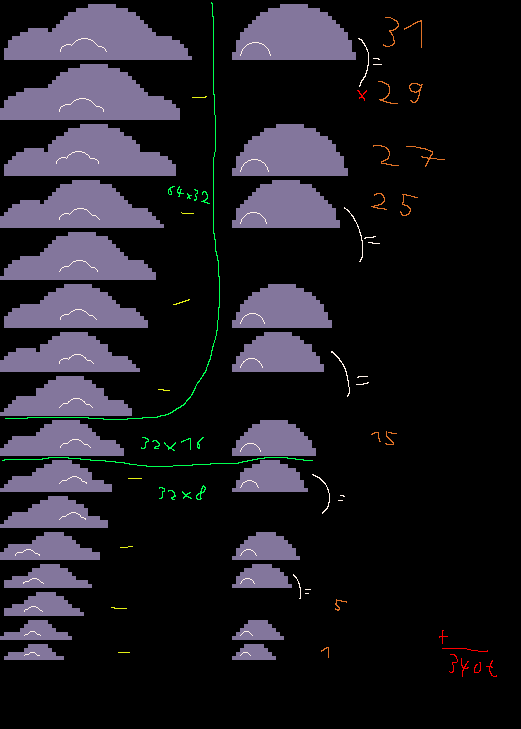 31
=
× 29
27
64×32
25
=
=
32×16
15
32×8
=
=
5
1
+
340t